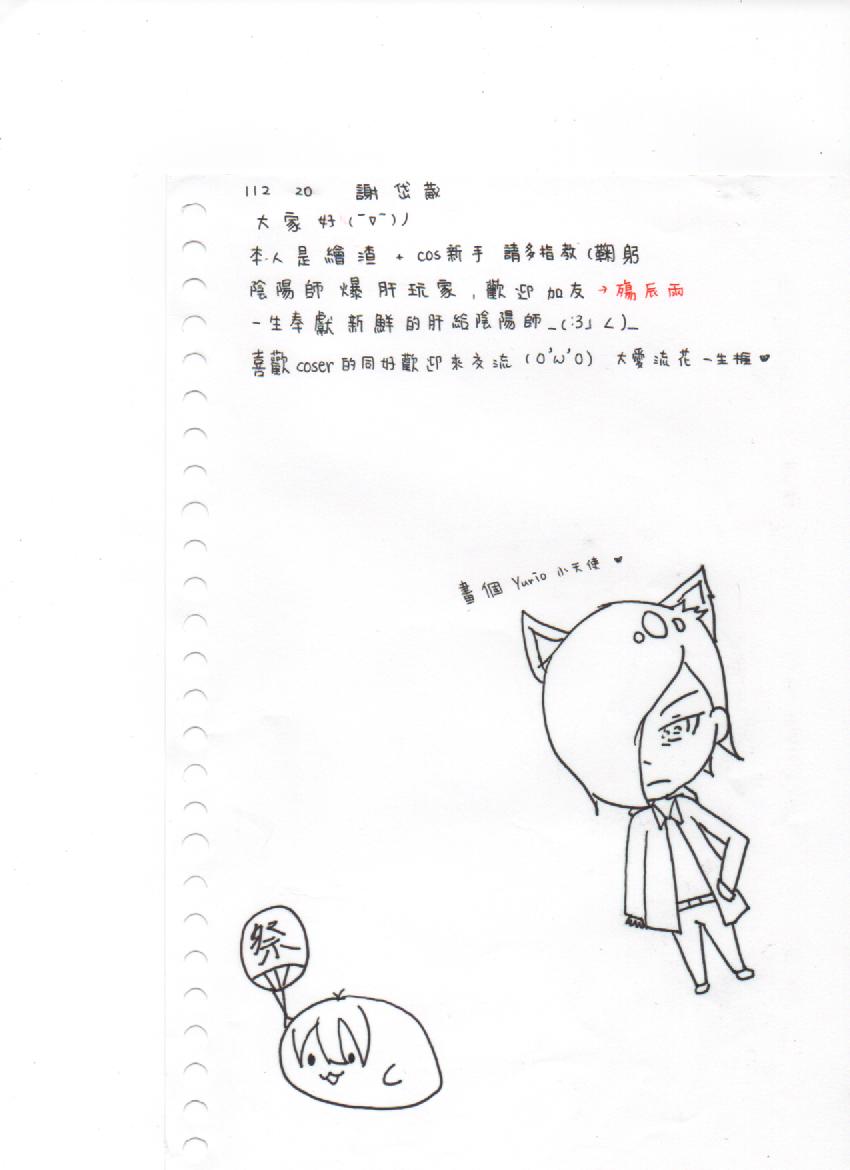 112 20 謝岱葳
大家好(ˉ▽ˉ)ﾉ
本人是繪渣 + cos新手 請多指教(鞠躬
陰陽師爆肝玩家,歡迎加友→殤辰雨
一生奉獻新鮮的肝給陰陽師_(:3」∠)_
喜歡coser的同好歡迎來交流(O'ω'O) 大愛流花一生推♥
畫個Yurio小天使♥
祭